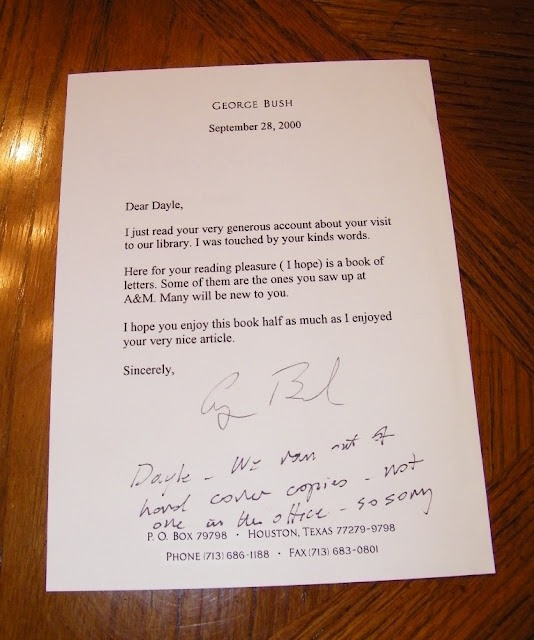 GEORGE BUSH
September 28, 2000
Dear Dayle,
I just read your very generous account about your visit
to our library. I was touched by your kinds words.
Here for your reading pleasure ( I hope) is a book of
letters. Some of them are the ones you saw up at
A&M. Many will be new to you.
I hope you enjoy this book half as much as I enjoyed
your very nice article.
Sincerely,
G Bush
Dayle - We ran out of
hard cover copies - not
one in the office - so sorry
P. O. BOX 79798 · HOUSTON, TEXAS 77279-9798
PHONE (713) 686-1188 · FAX (713) 683-0801